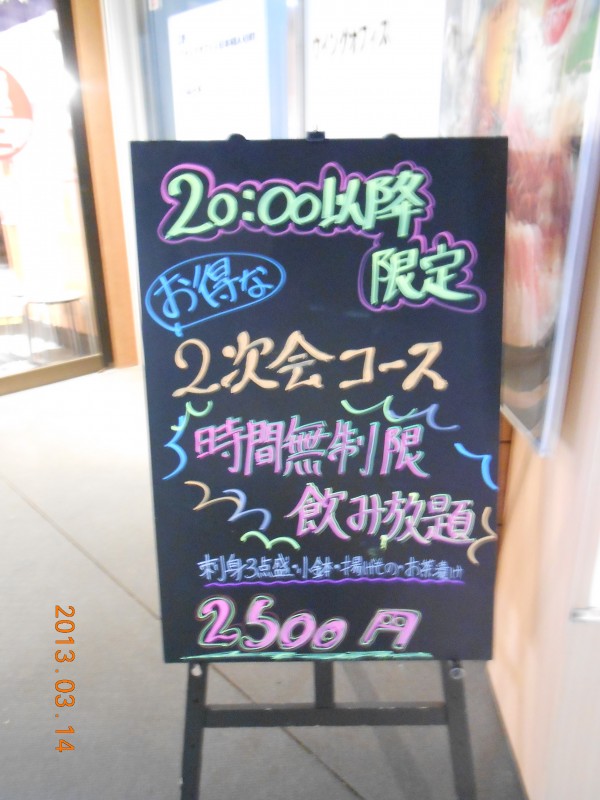 ウィングオフィス
20:00以降
限定
お得な
2次会コース
時間無制限
飲み放題
刺身3点盛・小鉢・揚げもの・お茶漬け
2500円
2013.03.14